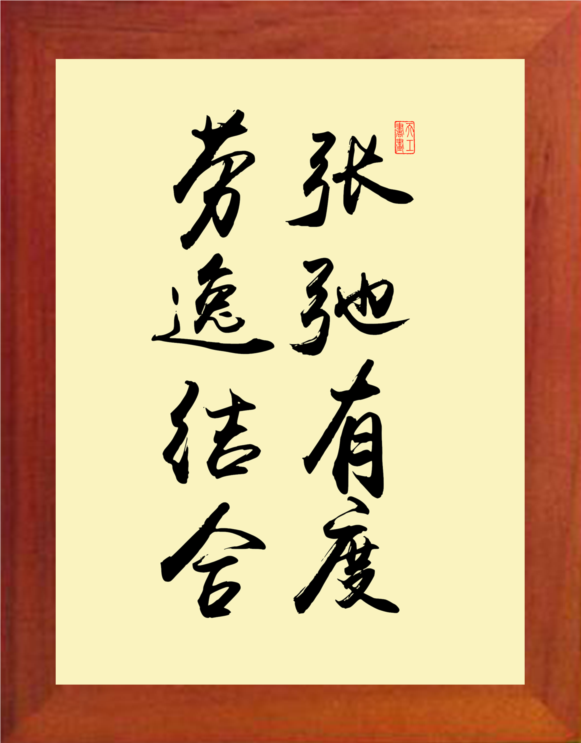 张弛有度
劳逸结合